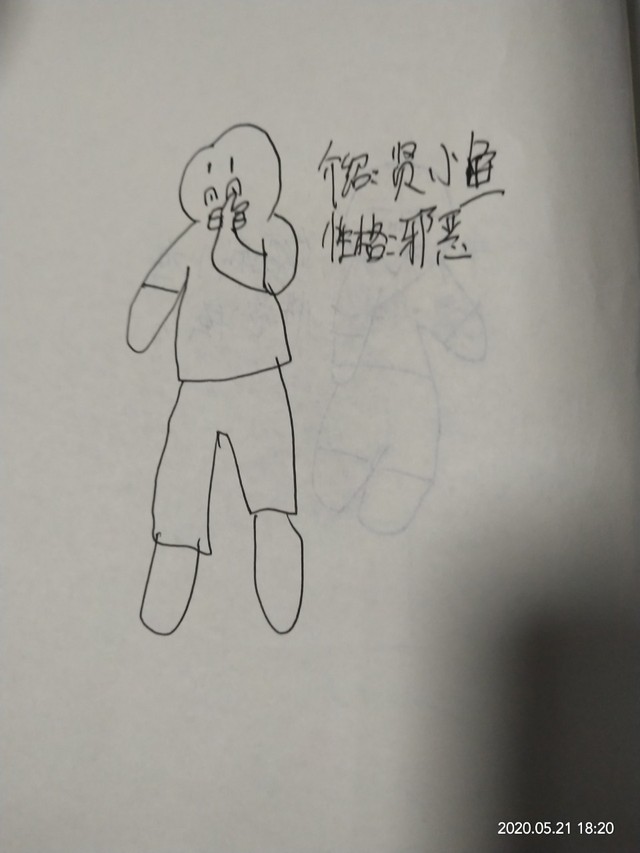 介绍:贤小鱼
性格:邪恶
2020.05.21 18:20